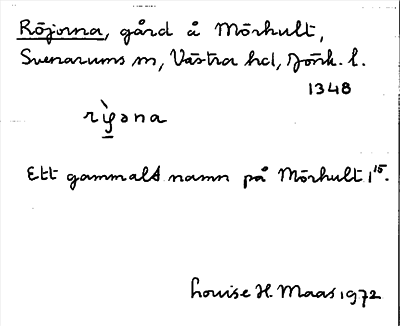 Röjorna, gård å Mörhult,
Svenarums sn, Västra hd, Jönk. l.
1348
rỳəna
Ett gammalt namn på Mörhult 1¹⁵.
Louise H. Maas 1972